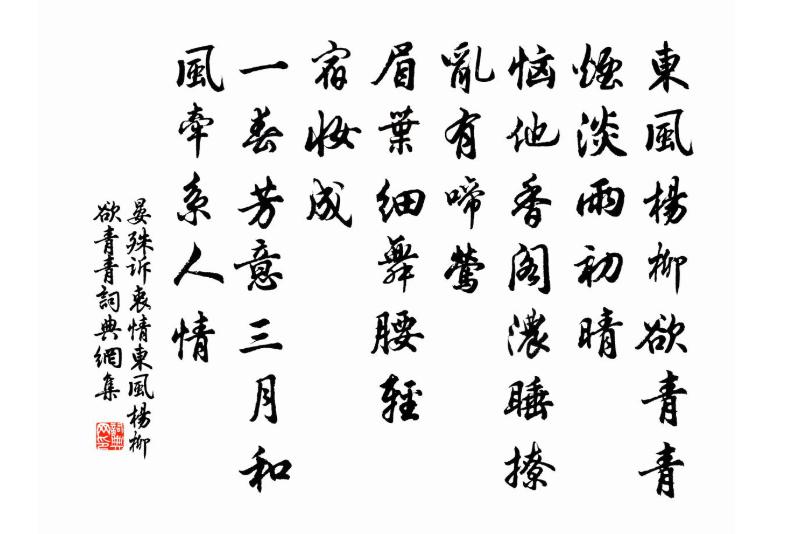 東風楊柳欲青青
煙淡雨初晴
惱他香阁濃睡撩
亂有啼鶯
眉葉細舞腰輕
宿妝成
一春芳意三月和
風牽系人情
晏殊訴衷情東風楊柳
欲青青詞典網集